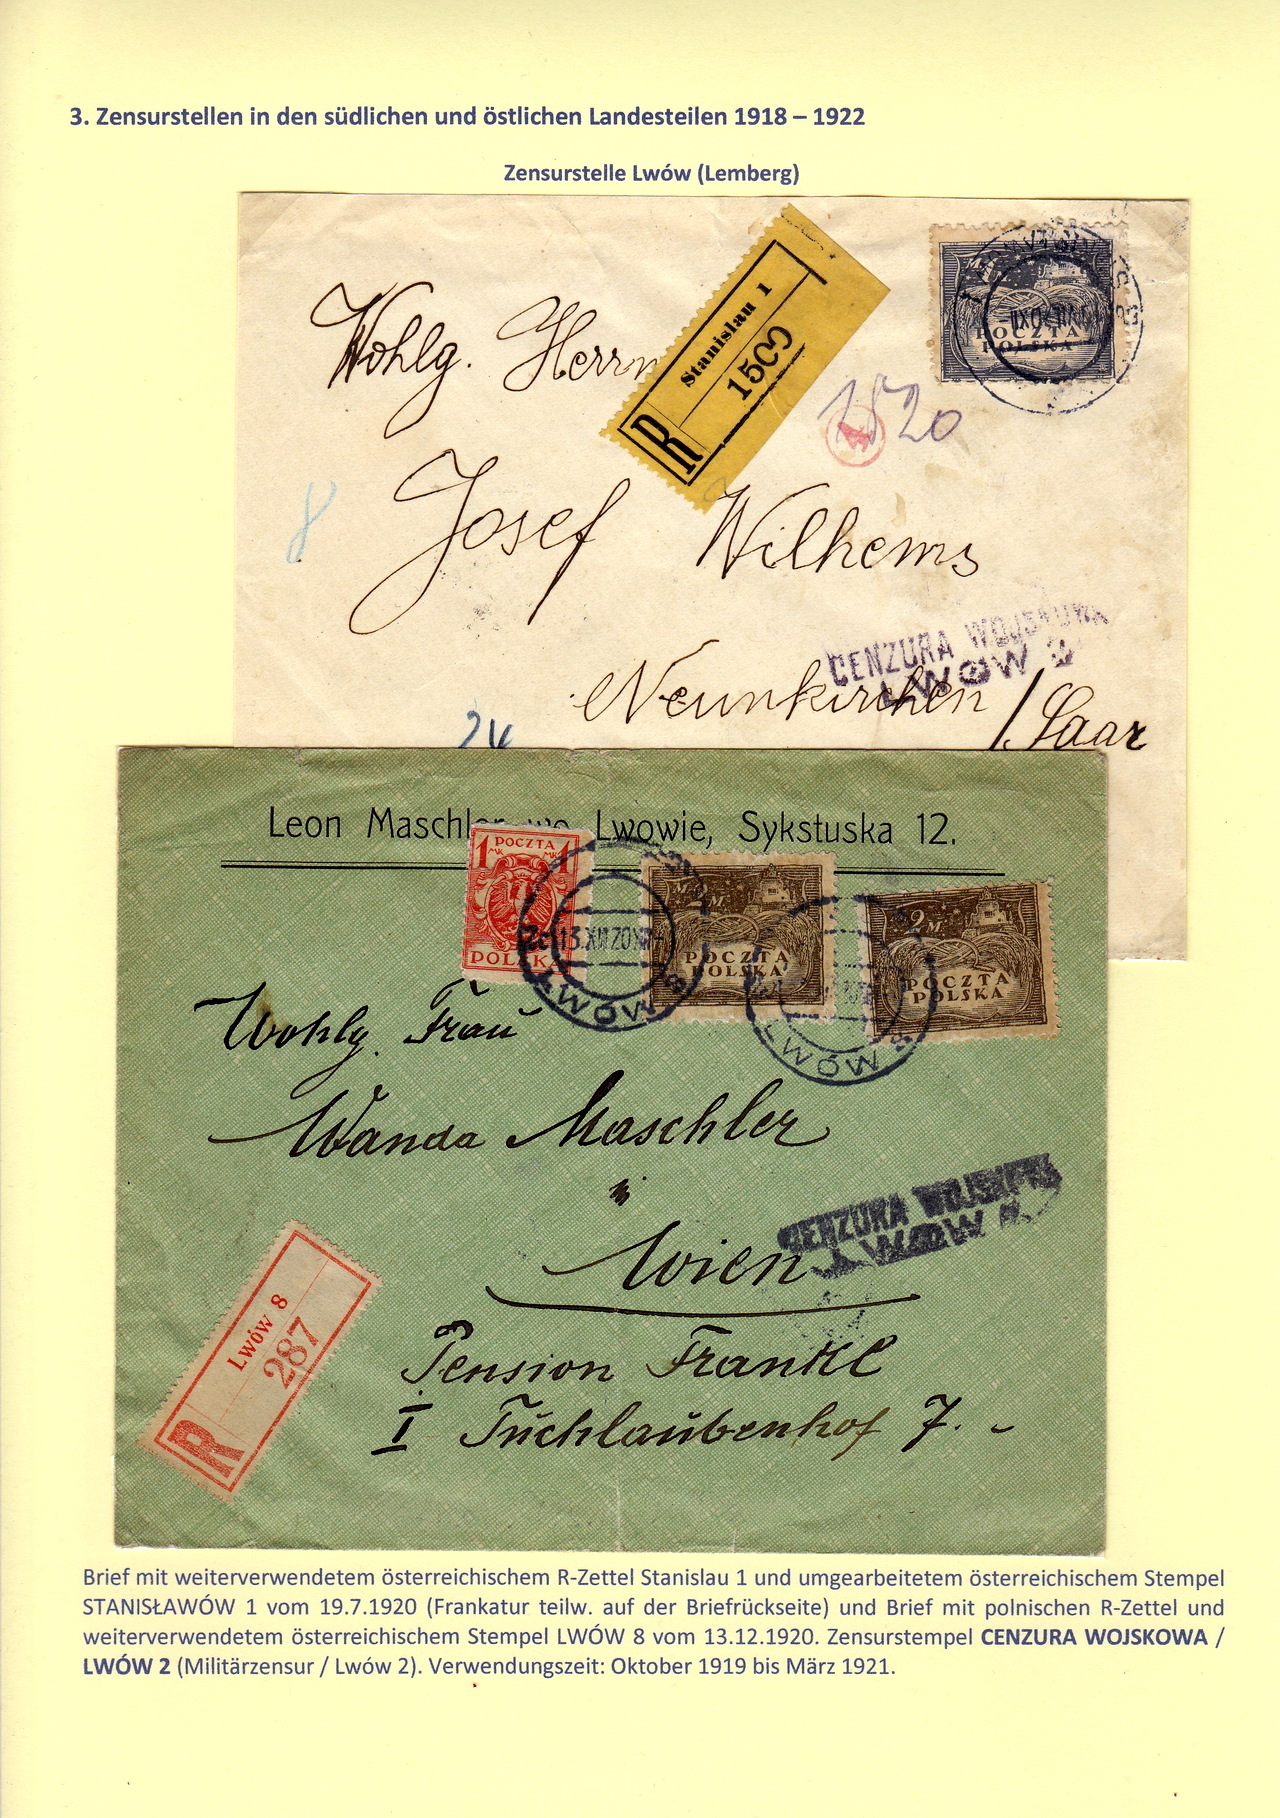 3. Zensurstellen in den südlichen und östlichen Landesteilen 1918 – 1922
Zensurstelle Lwów (Lemberg)
Wohlg. Herrn
Stanislau 1
1500
R
POCZTA
POLSKA
1520
8
Josef Wilhems
CENZURA WOJSKOWA
LWÓW 2
Neunkirchen / Saar
24
Leon Maschler we Lwowie, Sykstuska 12.
1 POCZTA 1
MK MK
POLSKA
2 M.
POCZTA
POLSKA
2 M.
POCZTA
POLSKA
13.XII.20
LWÓW 8
LWÓW 8
Wohlg. Frau
Wanda Maschler
CENZURA WOJSKOWA
LWÓW 2
Wien
Lwów 8
287
R
Pension Frankl
I Tuchlaubenhof 7. -
Brief mit weiterverwendetem österreichischem R-Zettel Stanislau 1 und umgearbeitetem österreichischem Stempel
STANISŁAWÓW 1 vom 19.7.1920 (Frankatur teilw. auf der Briefrückseite) und Brief mit polnischen R-Zettel und
weiterverwendetem österreichischem Stempel LWÓW 8 vom 13.12.1920. Zensurstempel CENZURA WOJSKOWA /
LWÓW 2 (Militärzensur / Lwów 2). Verwendungszeit: Oktober 1919 bis März 1921.